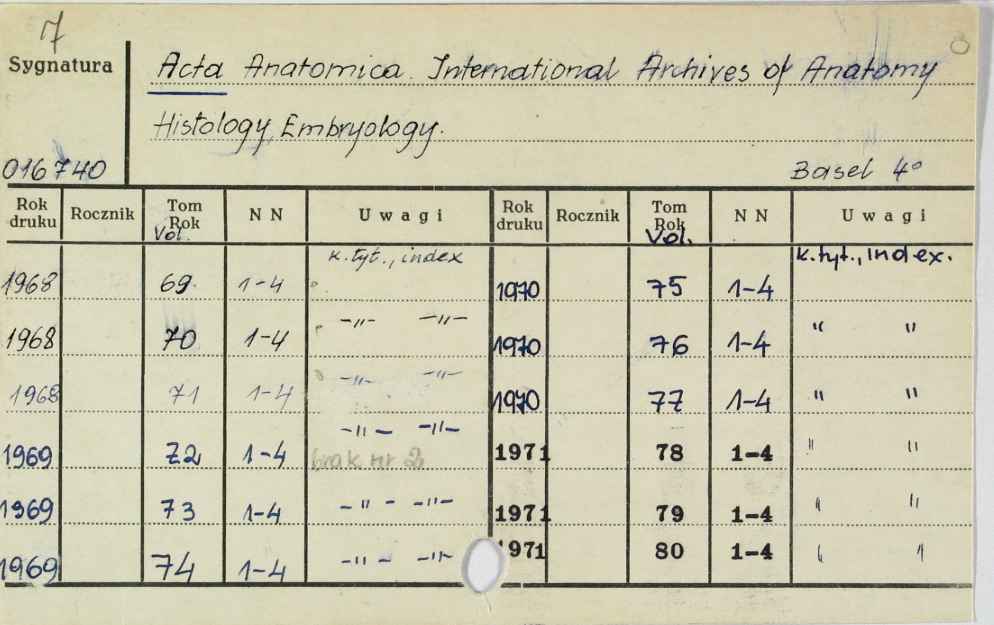 7
Sygnatura
Acta Anatomica. International Archives of Anatomy
Histology, Embryology.
016740
Basel 4°
Rok druku Rocznik Tom Rok Vol. N N Uwagi Rok druku Rocznik Tom Rok Vol. N N Uwagi
k. tyt., index k. tyt., index.
1968 69 1-4 1970 75 1-4
1968 70 1-4 -"- -"- 1970 76 1-4 " "
1968 71 1-4 -"- -"- 1970 77 1-4 " "
1969 72 1-4 -"- -"- brak nr 2 1971 78 1-4 " "
1969 73 1-4 -"- -"- 1971 79 1-4 " "
1969 74 1-4 -"- -"- 1971 80 1-4 " "